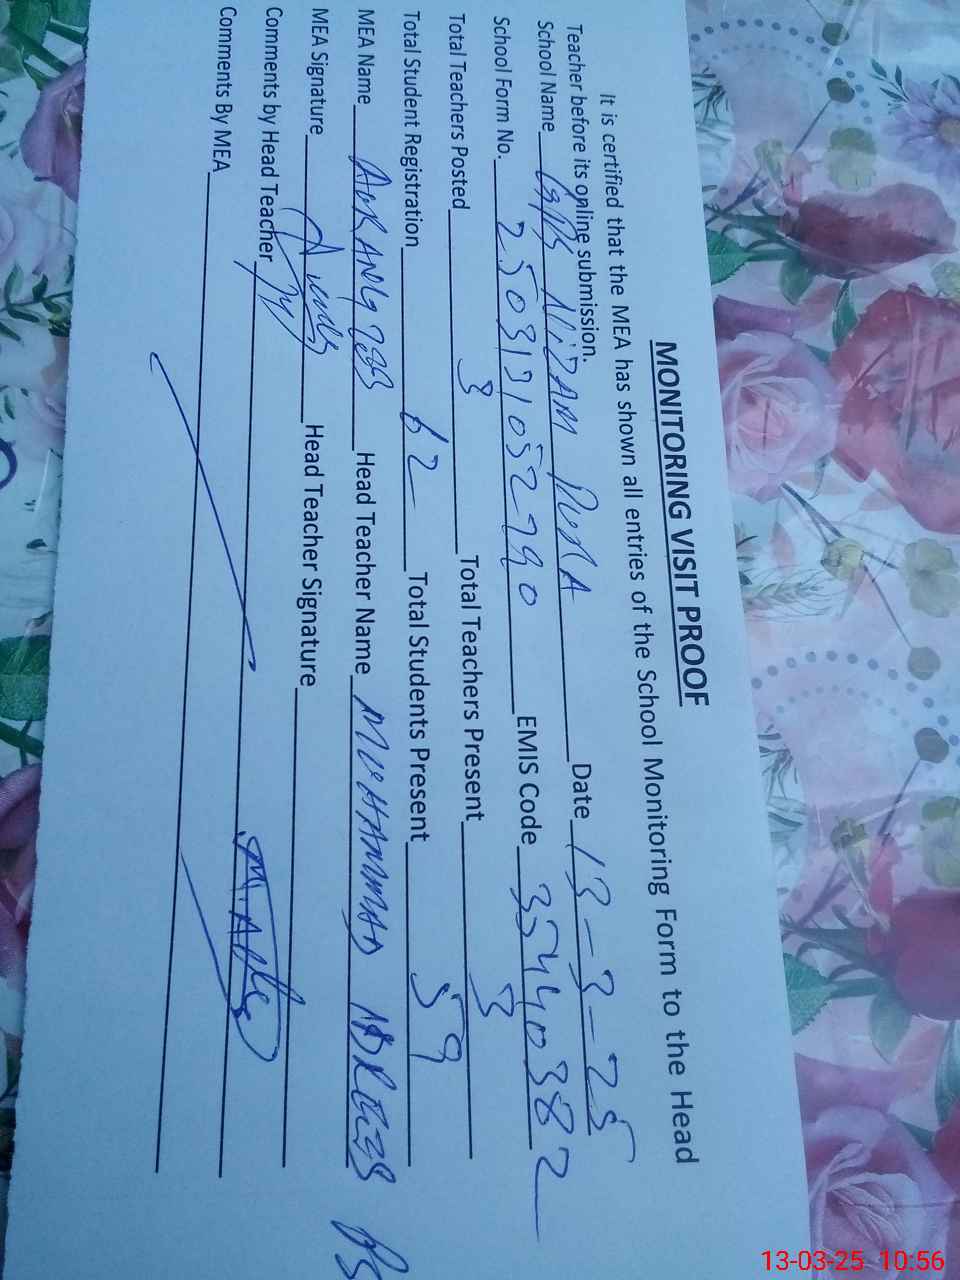 MONITORING VISIT PROOF
It is certified that the MEA has shown all entries of the School Monitoring Form to the Head
Teacher before its online submission.
School Name GPS ALIDAM Date 13-3-25
School Form No. 2503131052790 EMIS Code 35440382
Total Teachers Posted 3 Total Teachers Present 3
Total Student Registration 62 Total Students Present 59
MEA Name AURANGZEB Head Teacher Name MUHAMMAD
MEA Signature Head Teacher Signature
Comments by Head Teacher
Comments By MEA
13-03-25 10:56